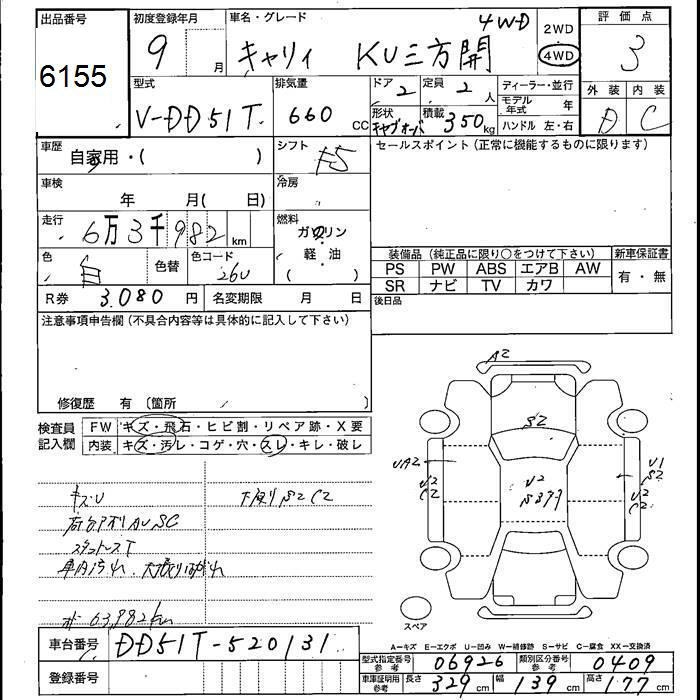 出品番号
6155
初度登録年月
9 月
車名・グレード
キャリィ KU三方開 4WD
2WD
4WD
評価点
3
外装 内装
D C
型式
V-DD51T
排気量
660 CC
ドア 2
定員 2 人
形状 キャブオーバ
積載 350 kg
ディーラー・並行
モデル年式 年
ハンドル 左・右
車歴
自家用・( )
シフト F5
セールスポイント(正常に機能するものに限ります)
車検
年 月( 日)
冷房
走行
6万3千982 km
燃料
ガソリン
軽油
( )
色
白
色替
色コード
26U
装備品(純正品に限り○をつけて下さい)
新車保証書
PS PW ABS エアB AW
SR ナビ TV カワ
有・無
R券 3,080 円
名変期限 月 日
後日品
注意事項申告欄(不具合内容等は具体的に記入して下さい)
修復歴 有(箇所 )
検査員記入欄
FW キズ・飛石・ヒビ割・リペア跡・X要
内装 キズ・汚レ・コゲ・穴・スレ・キレ・破レ
キズU
下廻りS2C2
車内汚れ
63,982km
A2
S2
UA2
U2
C2
U2
U1
S2
U2
C2
スペア
A-キズ E-エクボ U-凹み W-補修跡 S-サビ C-腐食 XX-交換済
車台番号 DD51T-520131
登録番号
型式指定番号参考 06926
類別区分番号参考 0409
車庫証明用参考
長さ 329 cm
幅 139 cm
高さ 177 cm